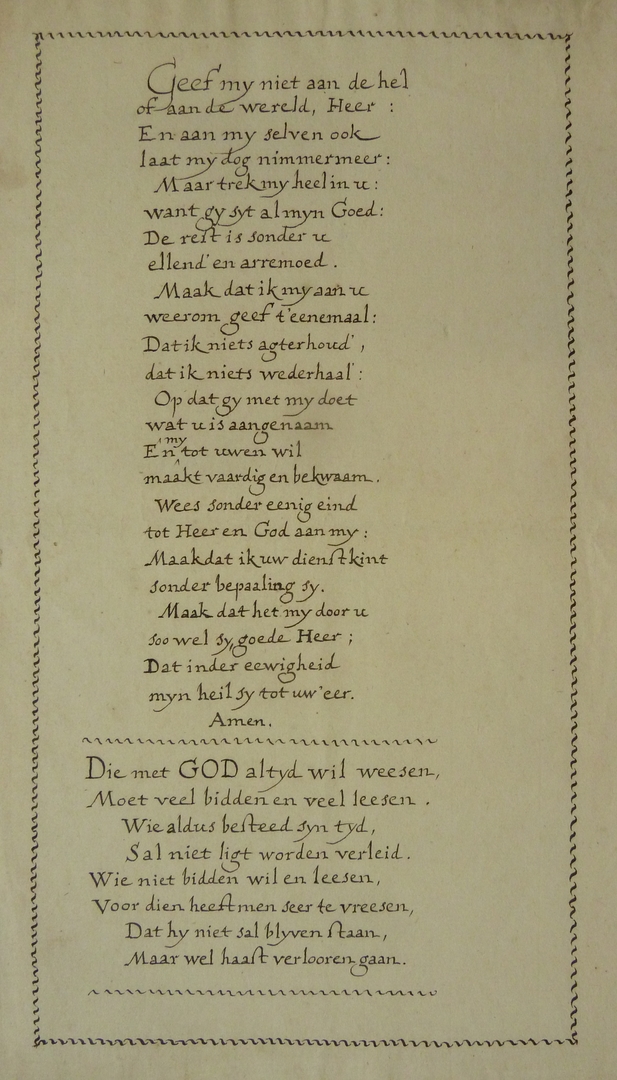 Geef my niet aan de hel
of aan de wereld, Heer :
En aan my selven ook
laat my dog nimmermeer :
Maar trek my heel in u :
want gy syt al myn Goed :
De rest is sonder u
ellend' en arremoed .
Maak dat ik my aan u
weerom geef t'eenemaal :
Dat ik niets agterhoud' ,
dat ik niets wederhaal' :
Op dat gy met my doet
wat u is aangenaam
En my tot uwen wil
maakt vaardig en bekwaam .
Wees sonder eenig eind
tot Heer en God aan my :
Maak dat ik uw dienstkint
sonder bepaaling sy .
Maak dat het my door u
soo wel sy, goede Heer ;
Dat in der eewigheid
myn heil sy tot uw' eer .
Amen .
Die met GOD altyd wil weesen ,
Moet veel bidden en veel leesen .
Wie aldus besteed syn tyd ,
Sal niet ligt worden verleid .
Wie niet bidden wil en leesen ,
Voor dien heeft men seer te vreesen ,
Dat hy niet sal blyven staan ,
Maar wel haast verlooren gaan .